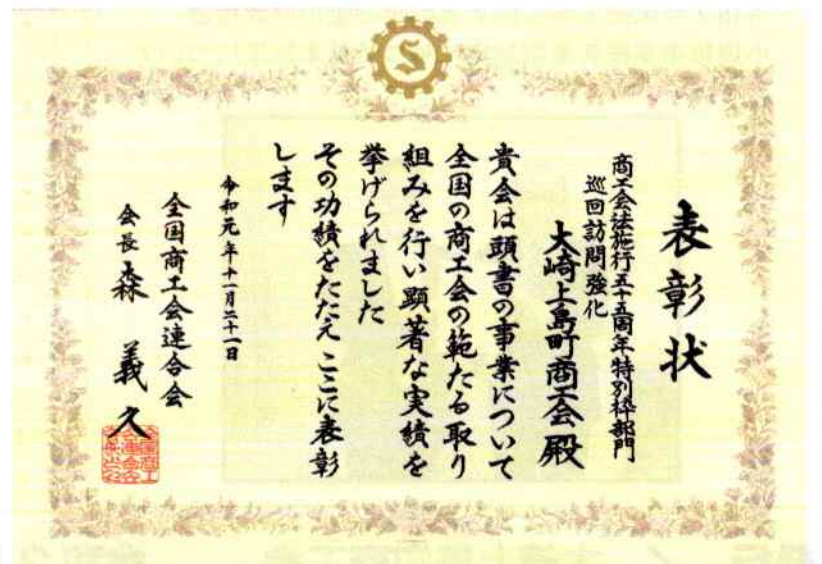 S
表彰状
商工会法施行五十五周年特別枠部門
巡回訪問強化
大崎上島町商工会殿
貴会は頭書の事業について
全国の商工会の範たる取り
組みを行い顕著な実績を
挙げられました
その功績をたたえここに表彰
します
令和元年十一月二十一日
全国商工会連合会
会長 森 義久